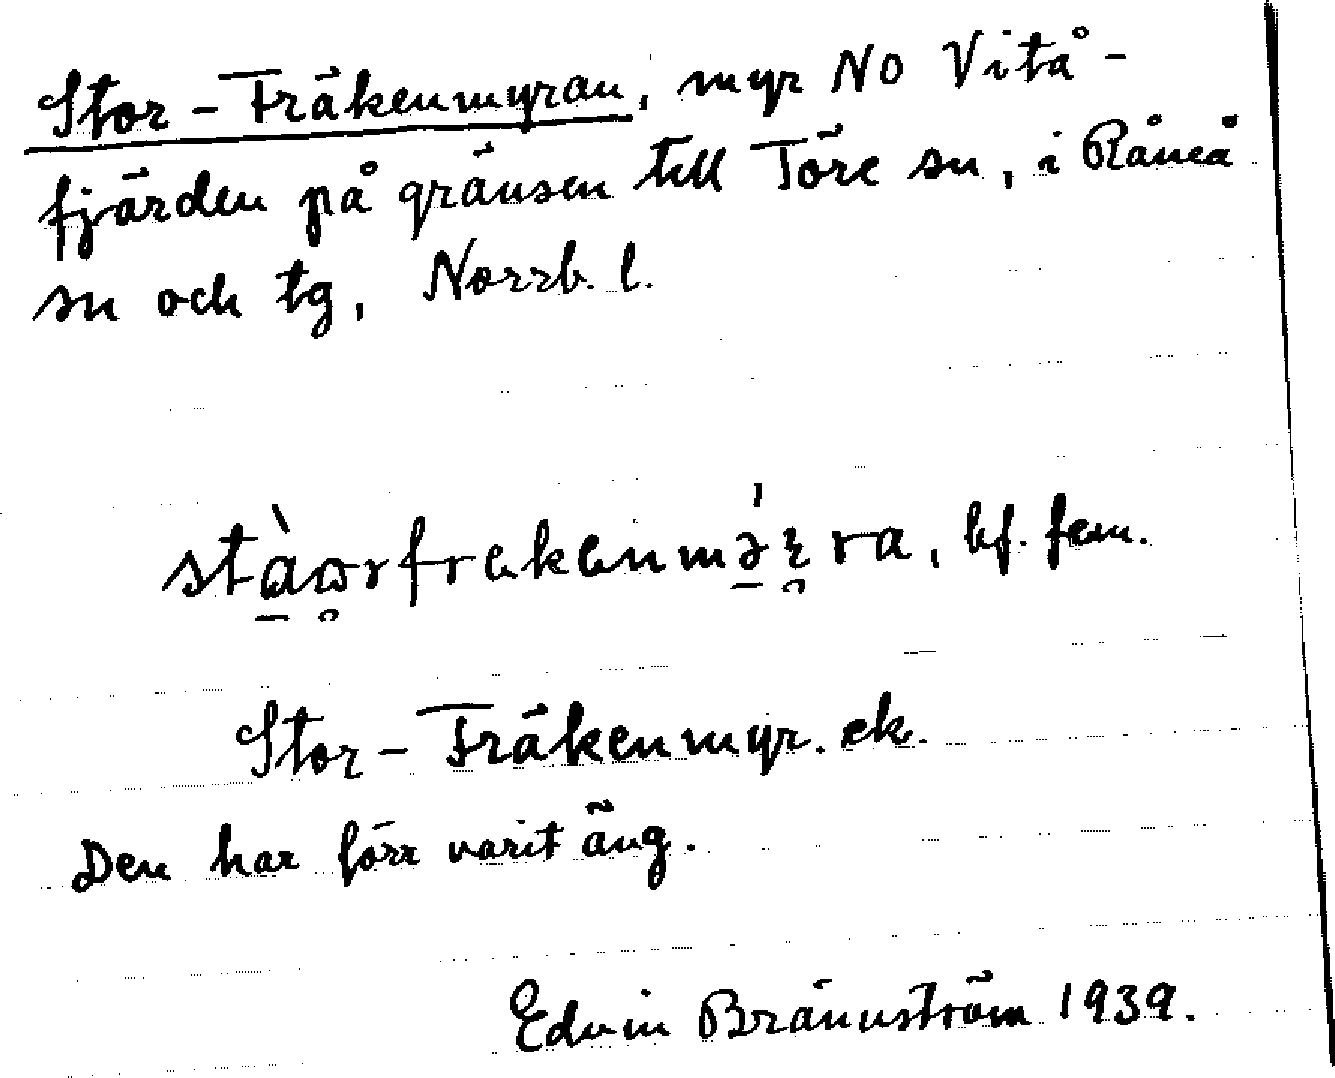 Stor-Fräkenmyran, myr NO Vitå-
fjärden på gränsen till Töre sn, i Råneå
sn och tg, Norrb. l.
bf. fem.
Stor-Fräkenmyr. ek.
Den har förr varit äng.
Edvin Brännström 1939.